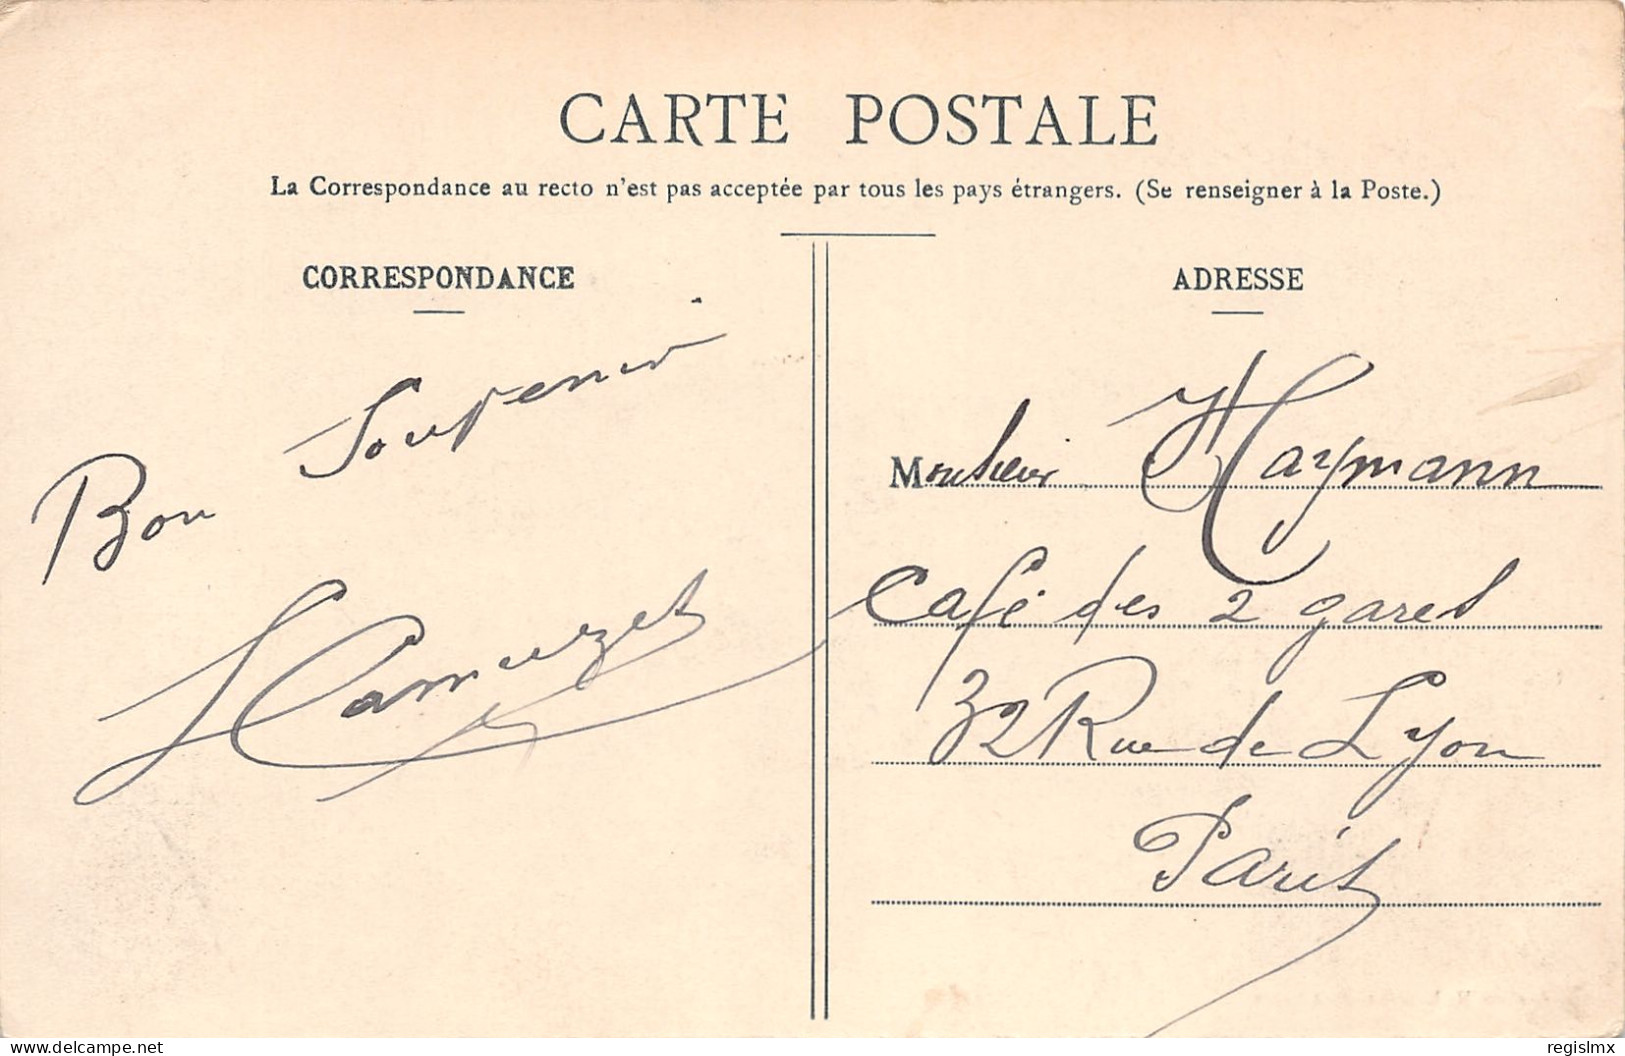 CARTE POSTALE
La Correspondance au recto n'est pas acceptée par tous les pays étrangers. (Se renseigner à la Poste.)
CORRESPONDANCE
Bon Souvenir
Camuzet
ADRESSE
Monsieur Haymann
Café des 2 gares
32 Rue de Lyon
Paris
delcampe.net
regislmx